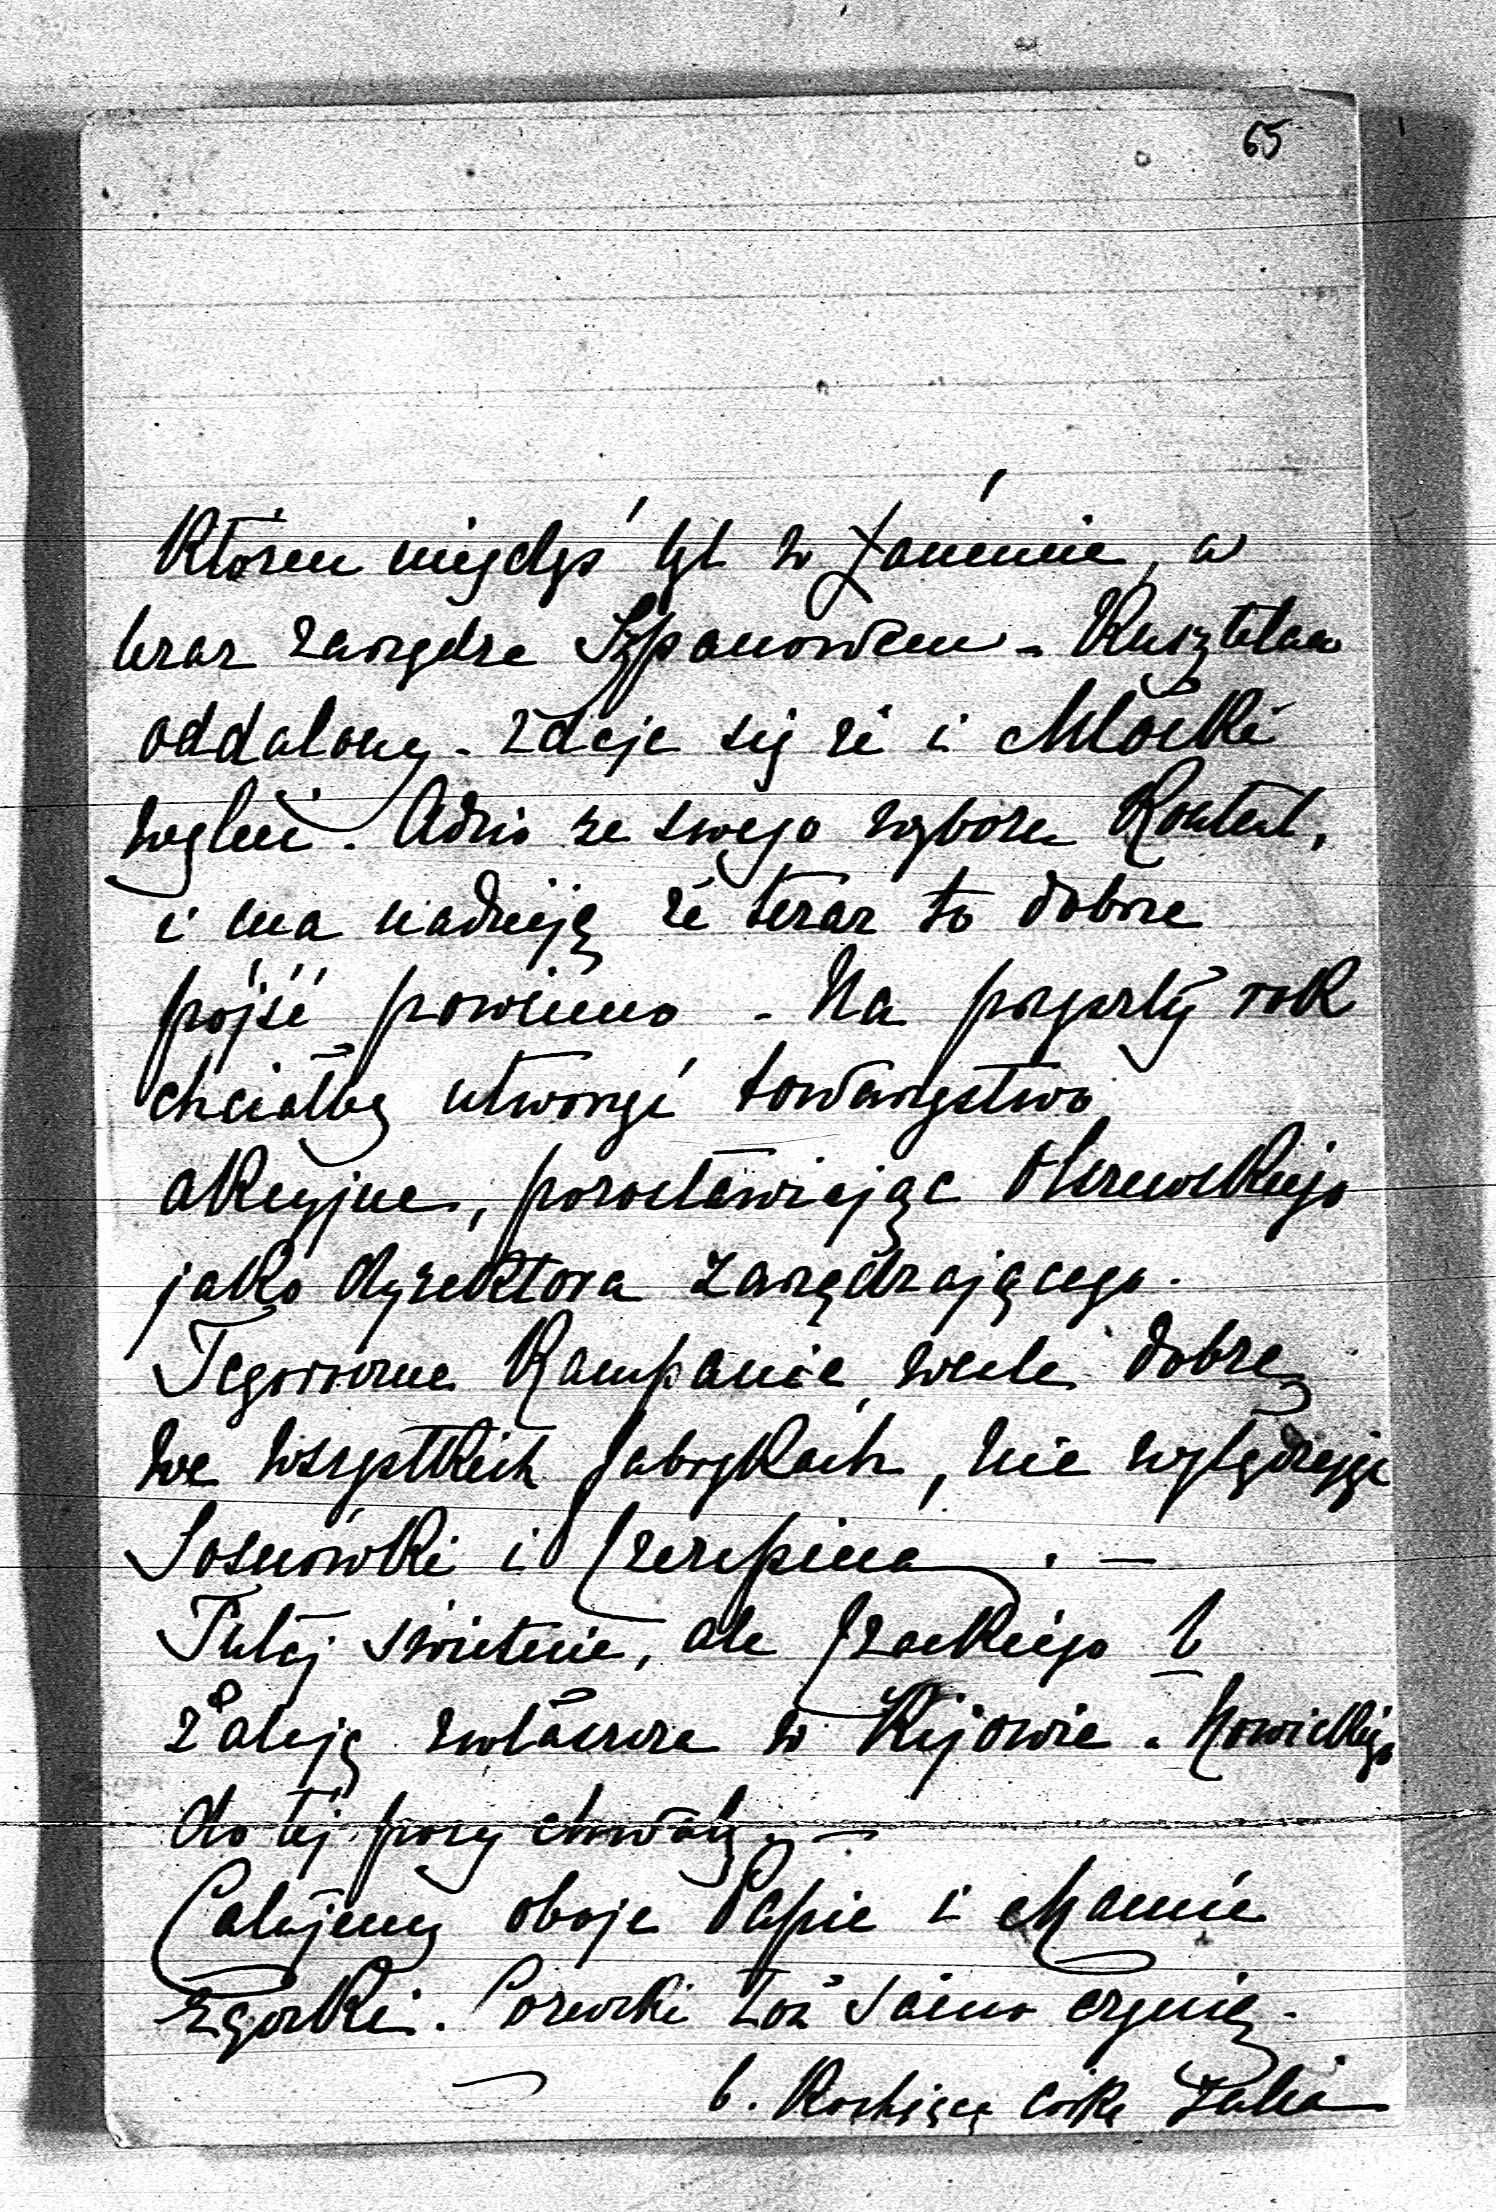 65
którem niegdyś był w Janinie, a
teraz zarządza Szpanowem - Kusztelan
oddalony - zdaje się że i Młocki
wyleci. Adzio ze swego wyboru kontent,
i ma nadzieję że teraz to dobrze
pójść powinno - Na przyszły rok
chciałby utworzyć towarzystwo
akcyjne, pozostawiając Olszewskiego
jako dyrektora zarządzającego.
Tegoroczne kampanie wcale dobre
we wszystkich fabrykach, nie wyłączając
Sosnówki i Czerepina. —
Tutaj świetnie, ale Czackiego b
żałują zwłaszcza w Kijowie. Nowickiego
do tej pory chwalą. —
Całujemy oboje Papie i Mamie
rączki. toż samo czynią -
b. kochająca córka Julia